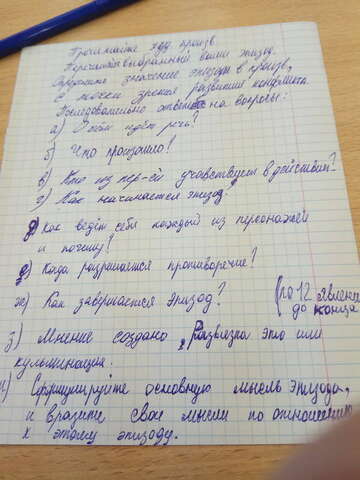 Прочитайте худ. произв.
Перечитайте выбранный вами эпизод.
Определите значение эпизода в произв,
с точки зрения развития конфликта.
Последовательно ответьте на вопросы:
а) О чём идёт речь?
б) Что произошло?
в) Кто из пер-ей учавствует в действии?
г) Как начинается эпизод?
д) Как ведёт себя каждый из персонажей
и почему?
е) Когда разрешается противоречие?
ж) Как завершается эпизод? (по 12 явление
до конца
з) Мнение создано, Развязка это или
кульминация.
и) Сформулируйте основную мысль эпизода,
и вразите свои мысли по отношению
к этому эпизоду.